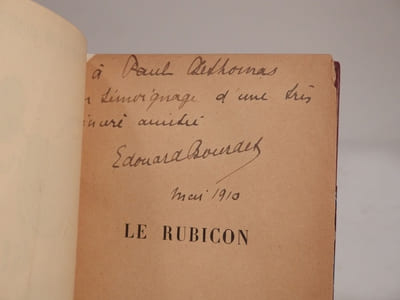 à Paul Desthomas
en témoignage d'une très
sincère amitié
Edouard Bourdet
Mai 1910
LE RUBICON